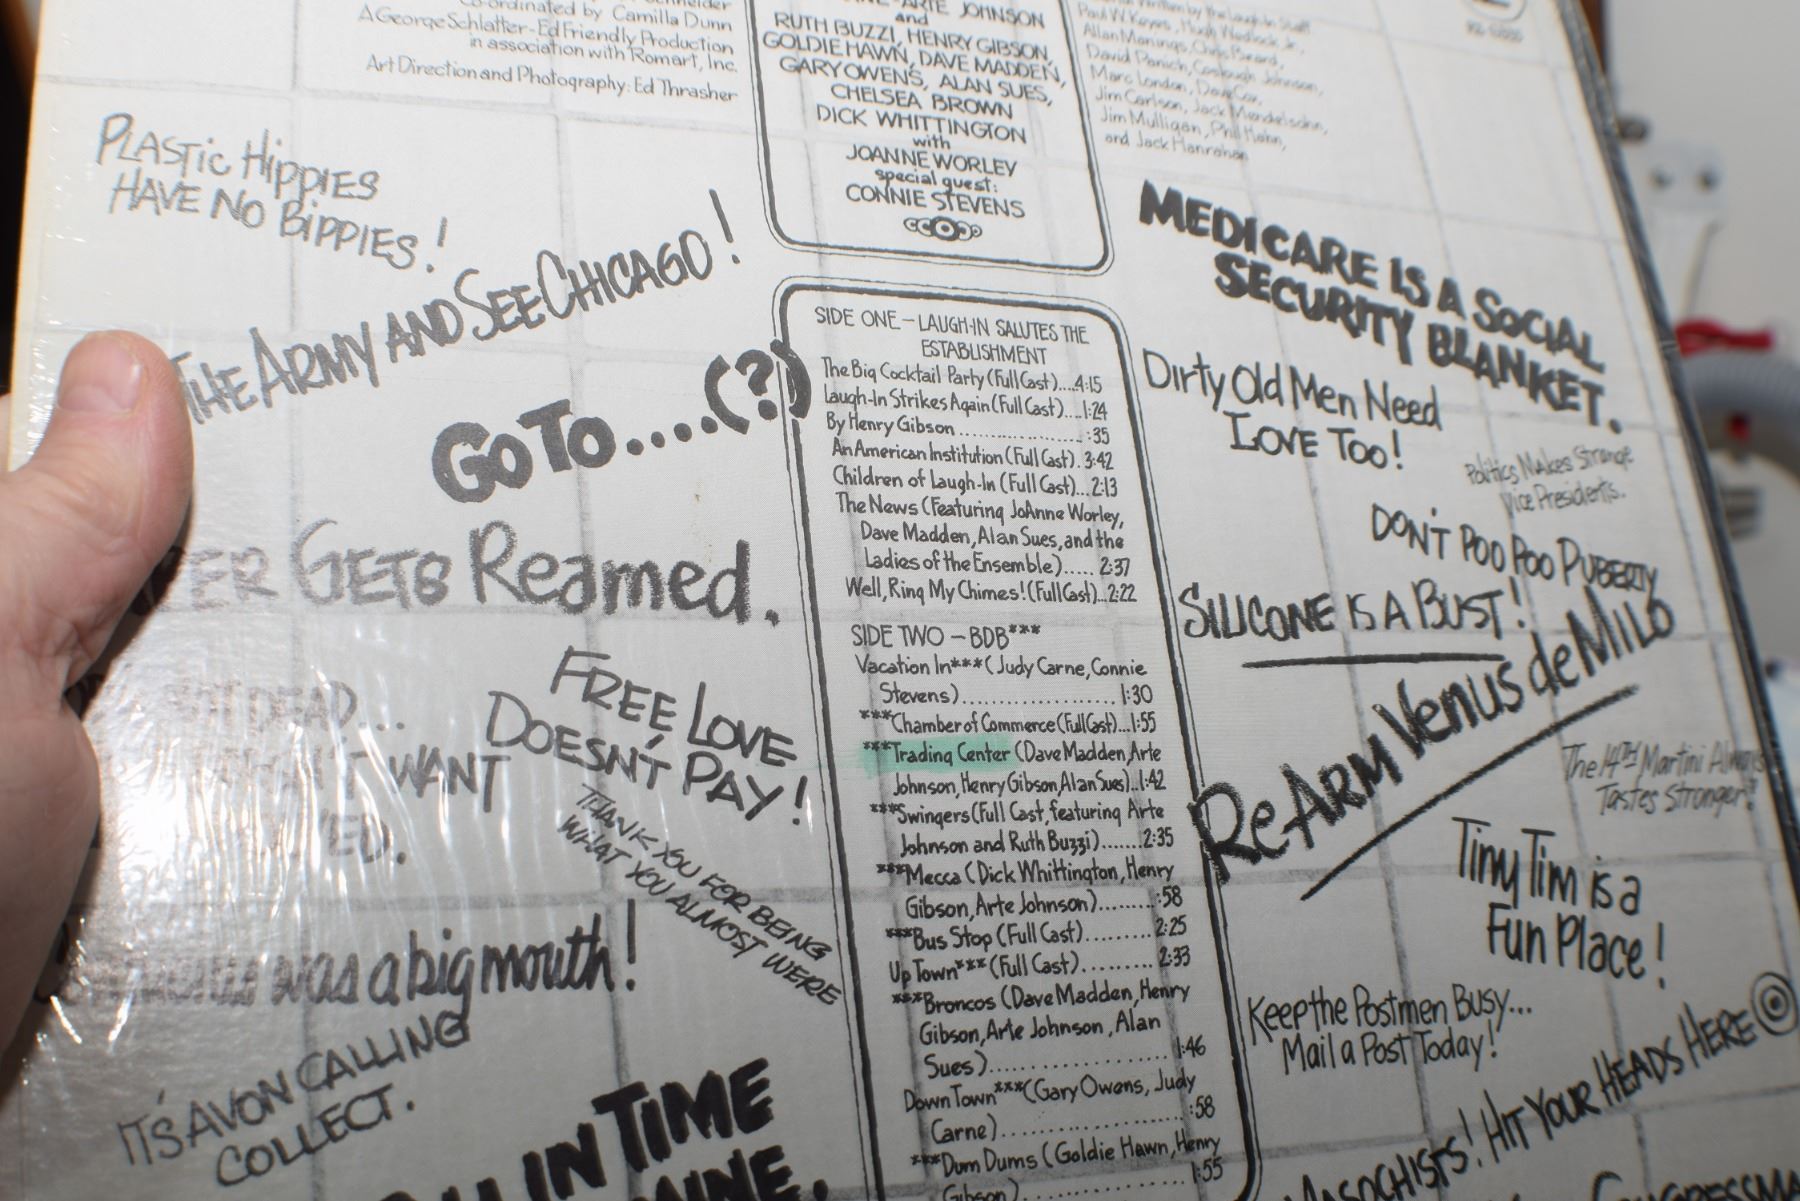 ordinated by Camilla Dunn
A George Schlatter-Ed Friendly Production
in association with Romart, Inc.
Art Direction and Photography: Ed Thrasher
ARTE JOHNSON
and
RUTH BUZZI, HENRY GIBSON,
GOLDIE HAWN, DAVE MADDEN,
GARY OWENS, ALAN SUES,
CHELSEA BROWN
DICK WHITTINGTON
with
JOANNE WORLEY
special guest:
CONNIE STEVENS
Written by the Laugh-In Staff
Paul W. Keyes, Hugh Wedlock, Jr.,
Allan Manings, Chris Beard,
David Panich, Coslough Johnson,
Marc London, Dave Cox,
Jim Carlson, Jack Mendelsohn,
Jim Mulligan, Phil Hahn,
and Jack Hanrahan
PLASTIC HIPPIES
HAVE NO BIPPIES!
THE ARMY AND SEE CHICAGO!
GO TO....(?)
GETS REAMED.
DEAD...
WANT
FREE LOVE
DOESN'T PAY!
THANK YOU FOR BEING
WHAT YOU ALMOST WERE
was a big mouth!
IT'S AVON CALLING
COLLECT.
IN TIME
SIDE ONE - LAUGH-IN SALUTES THE
ESTABLISHMENT
The Big Cocktail Party (Full Cast)....4:15
Laugh-In Strikes Again (Full Cast)....1:24
By Henry Gibson.....................:35
An American Institution (Full Cast). 3:42
Children of Laugh-In (Full Cast)...2:13
The News (Featuring JoAnne Worley,
Dave Madden, Alan Sues, and the
Ladies of the Ensemble)..... 2:37
Well, Ring My Chimes! (Full Cast)...2:22
SIDE TWO - BDB***
Vacation In*** (Judy Carne, Connie
Stevens)........................1:30
***Chamber of Commerce (Full Cast)...1:55
***Trading Center (Dave Madden, Arte
Johnson, Henry Gibson, Alan Sues)..1:42
***Swingers (Full Cast, featuring Arte
Johnson and Ruth Buzzi).......2:35
***Mecca (Dick Whittington, Henry
Gibson, Arte Johnson)........:58
***Bus Stop (Full Cast)..........2:25
Up Town*** (Full Cast)..........2:33
***Broncos (Dave Madden, Henry
Gibson, Arte Johnson, Alan
Sues).....................1:46
Down Town*** (Gary Owens, Judy
Carne).....................:58
***Dum Dums (Goldie Hawn, Henry
Gibson) 1:55
MEDICARE IS A SOCIAL
SECURITY BLANKET.
Dirty Old Men Need
LOVE TOO!
Politics Makes Strange
Vice Presidents.
DON'T POO POO PUBERTY
SILICONE IS A BUST!
ReARM VENUS de MILO
The 14TH Martini Always
Tastes Stronger!
Tiny Tim is a
Fun Place!
Keep the Postmen Busy...
Mail a Post Today!
MASOCHISTS! HIT YOUR HEADS HERE